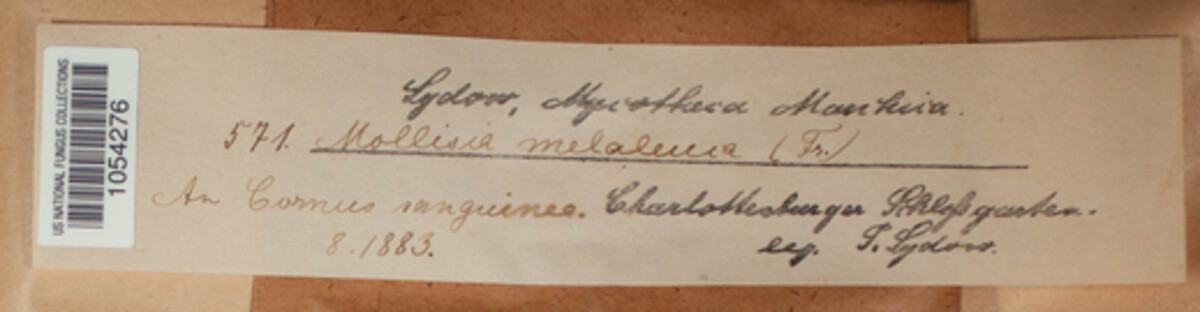 US NATIONAL FUNGUS COLLECTIONS
1054276
Sydow, Mycotheca Marchica.
571. Mollisia melaleuca (Fr.)
An Cornus sanguinea. Charlottenburger Schloßgarten.
8.1883. leg. P. Sydow.